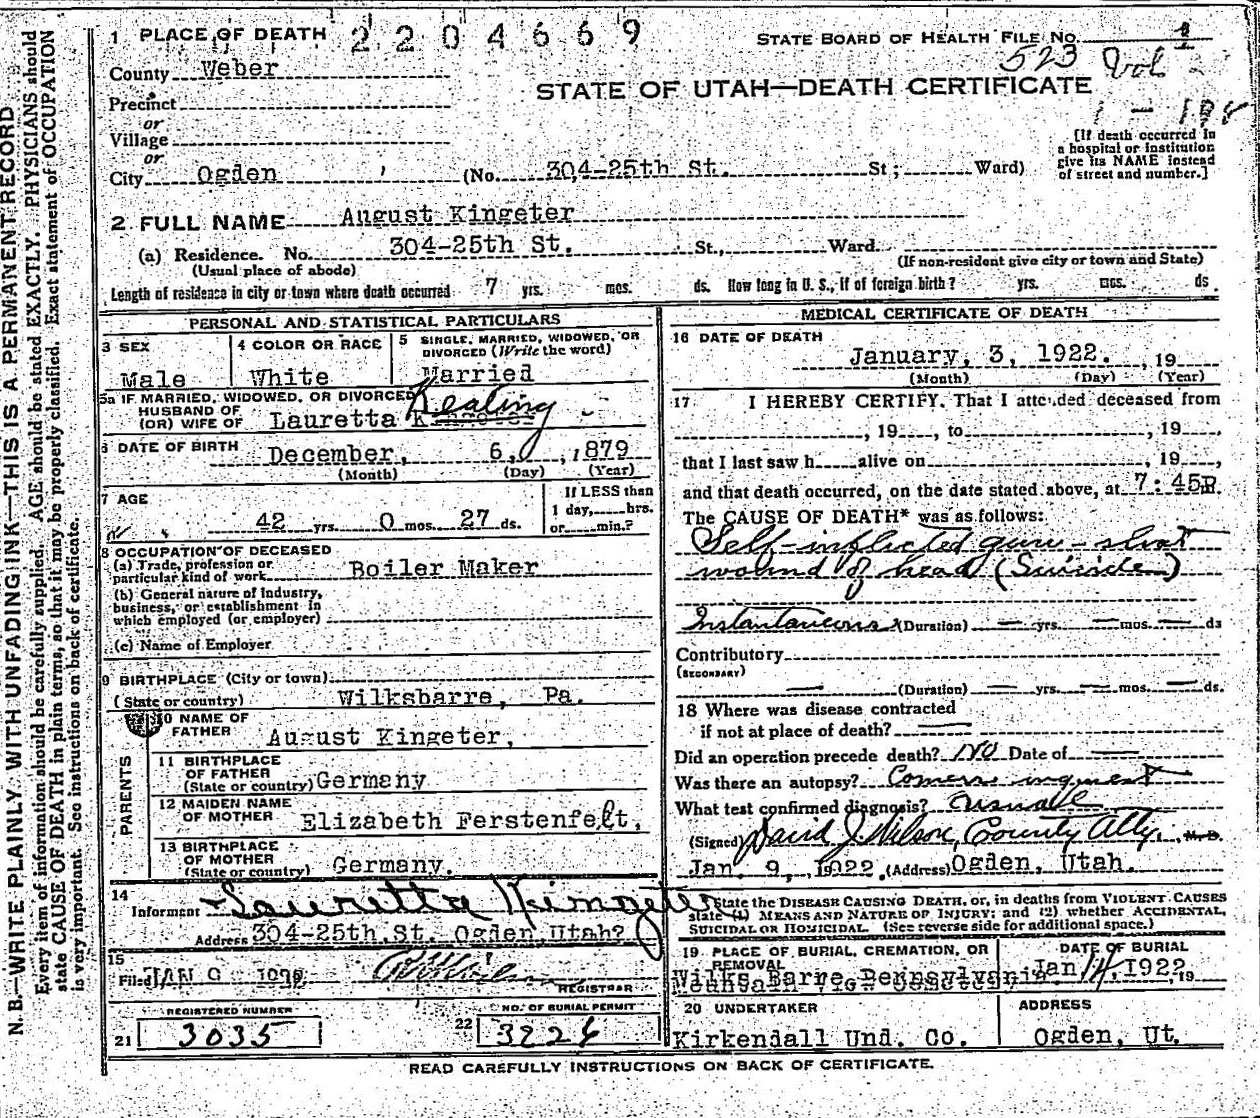 N.B.—WRITE PLAINLY, WITH UNFADING INK—THIS IS A PERMANENT RECORD
Every item of information should be carefully supplied. AGE should be stated EXACTLY. PHYSICIANS should
state CAUSE OF DEATH in plain terms, so that it may be properly classified. Exact statement of OCCUPATION
is very important. See instructions on back of certificate.
1 PLACE OF DEATH 2204669
STATE BOARD OF HEALTH FILE NO.
523 Vol
County Weber
STATE OF UTAH—DEATH CERTIFICATE
Precinct
or
Village
or
City Ogden (No. 304-25th St. St; Ward)
[If death occurred in
a hospital or institution
give its NAME instead
of street and number.]
2 FULL NAME August Kingeter
(a) Residence. No. 304-25th St. St., Ward.
(Usual place of abode) (If non-resident give city or town and State)
Length of residence in city or town where death occurred 7 yrs. mos. ds. How long in U. S., if of foreign birth? yrs. mos. ds.
PERSONAL AND STATISTICAL PARTICULARS
3 SEX Male
4 COLOR OR RACE White
5 SINGLE, MARRIED, WIDOWED, OR
DIVORCED (Write the word)
Married
5a IF MARRIED, WIDOWED, OR DIVORCED
HUSBAND OF
(OR) WIFE OF Lauretta Kealing
6 DATE OF BIRTH December, 6, 1879
(Month) (Day) (Year)
7 AGE
42 yrs. 0 mos. 27 ds.
If LESS than
1 day, hrs.
or min.?
8 OCCUPATION OF DECEASED
(a) Trade, profession or
particular kind of work Boiler Maker
(b) General nature of Industry,
business, or establishment in
which employed (or employer)
(c) Name of Employer
9 BIRTHPLACE (City or town)
(State or country) Wilksbarre, Pa.
PARENTS
10 NAME OF
FATHER August Kingeter,
11 BIRTHPLACE
OF FATHER
(State or country) Germany
12 MAIDEN NAME
OF MOTHER Elizabeth Ferstenfelt,
13 BIRTHPLACE
OF MOTHER
(State or country) Germany.
14
Informent Lauretta Kingeter
Address 304-25th St. Ogden, Utah?
15
Filed JAN
REGISTRAR
REGISTERED NUMBER
21 3035
NO. OF BURIAL PERMIT
22 3226
MEDICAL CERTIFICATE OF DEATH
16 DATE OF DEATH
January, 3, 1922. 19
(Month) (Day) (Year)
17 I HEREBY CERTIFY, That I attended deceased from
, 19 , to , 19 ,
that I last saw h alive on , 19 ,
and that death occurred, on the date stated above, at 7:45P.
The CAUSE OF DEATH* was as follows:
Self-inflicted gun-shot
wound of head (Suicide)
Instantaneous (Duration) — yrs. — mos. — ds
Contributory
(SECONDARY)
— (Duration) — yrs. — mos. — ds.
18 Where was disease contracted
if not at place of death? —
Did an operation precede death? No Date of —
Was there an autopsy? Coroners inquest
What test confirmed diagnosis? usual
(Signed) David J. Wilson, County Atty, M. D.
Jan. 9, 1922. (Address) Ogden, Utah.
*State the DISEASE CAUSING DEATH, or, in deaths from VIOLENT CAUSES
state (1) MEANS AND NATURE OF INJURY; and (2) whether ACCIDENTAL,
SUICIDAL OR HOMICIDAL. (See reverse side for additional space.)
19 PLACE OF BURIAL, CREMATION, OR
REMOVAL
Wilks Barre Pennsylvania
DATE OF BURIAL
Jan 14, 1922 19
20 UNDERTAKER
Kirkendall Und. Co.
ADDRESS
Ogden, Ut.
READ CAREFULLY INSTRUCTIONS ON BACK OF CERTIFICATE.